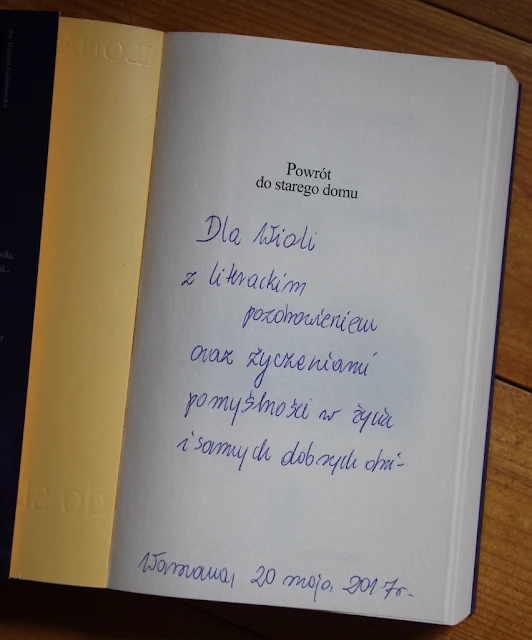 Powrót
do starego domu
Dla Wioli
z literackim
pozdrowieniem
oraz życzeniami
pomyślności w życiu
i samych dobrych dni-
Warszawa, 20 maja, 2017r.